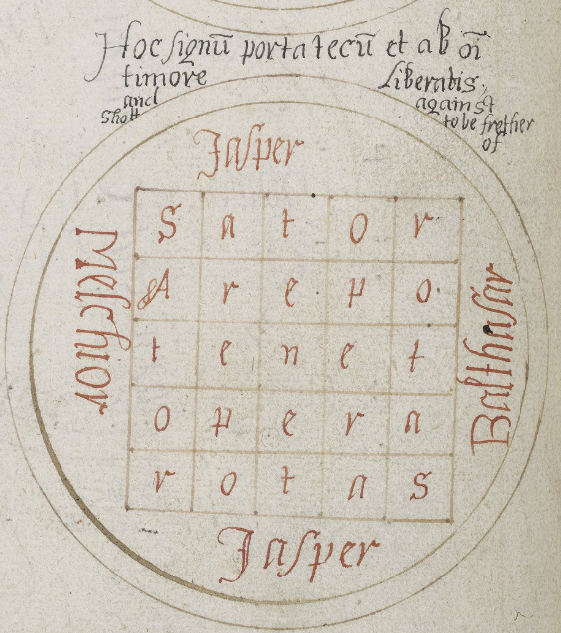 Hoc signū porta tecū et ab oī
timore Liberabis
and against
Shott to be frether
of
Jasper
Melchior
S a t o r
A r e p o
t e n e t
o p e r a
r o t a s
Balthasar
Jasper